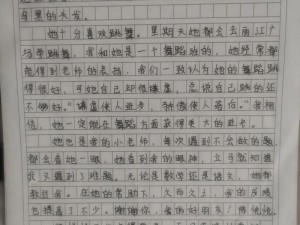 乌黑的头发。
她十分喜欢跳舞，星期天她都会去丽江广
场学跳舞，我和她是一个舞蹈班的，她经常都
能得到老师的表扬，我们一致认为她的舞蹈跳
得很好，可她自己却很谦虚，总说自己跳的还
不够好。“谦虚使人进步，骄傲使人落后。”我相
信，她一定能在舞蹈方面获得更大的进步。
她也是我的小老师，每次遇到不会做的题
都会看她一眼，她看到我的眼神，立马就知道
我又遇到了难题。无论是数学还是语文，她都
教我。在她的帮助下，久而久之，我的成绩
也提高了不少。谢谢你，我的好朋友！